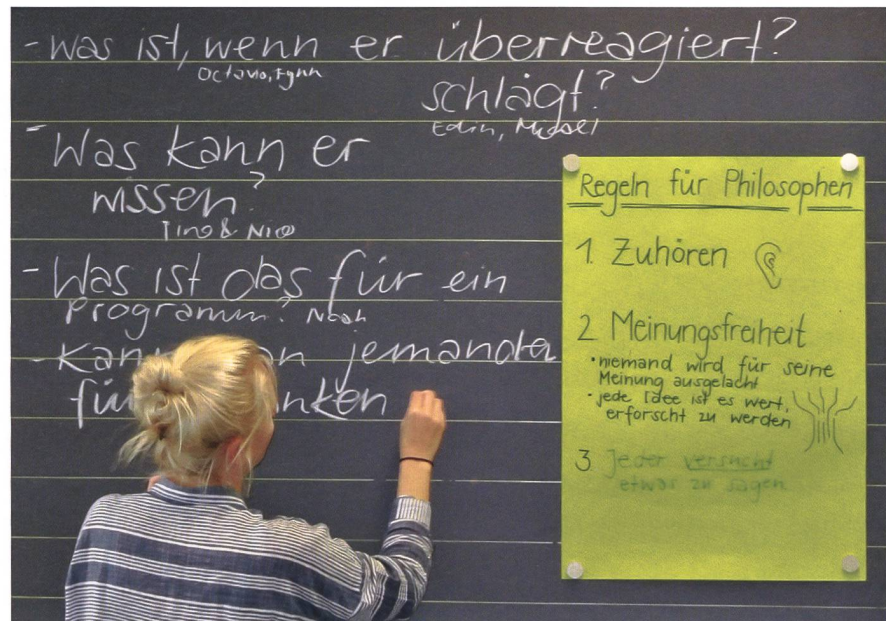 - Was ist, wenn er überreagiert?
Octavio, Fynn
schlägt?
Edin,
- Was kann er
wissen?
Tino & Nico
- Was ist das für ein
Programm? Noah
- jemanden
für
Regeln für Philosophen
1. Zuhören
2. Meinungsfreiheit
• niemand wird für seine
Meinung ausgelacht
• jede Idee ist es wert,
erforscht zu werden
3. Jeder versucht
etwas zu sagen